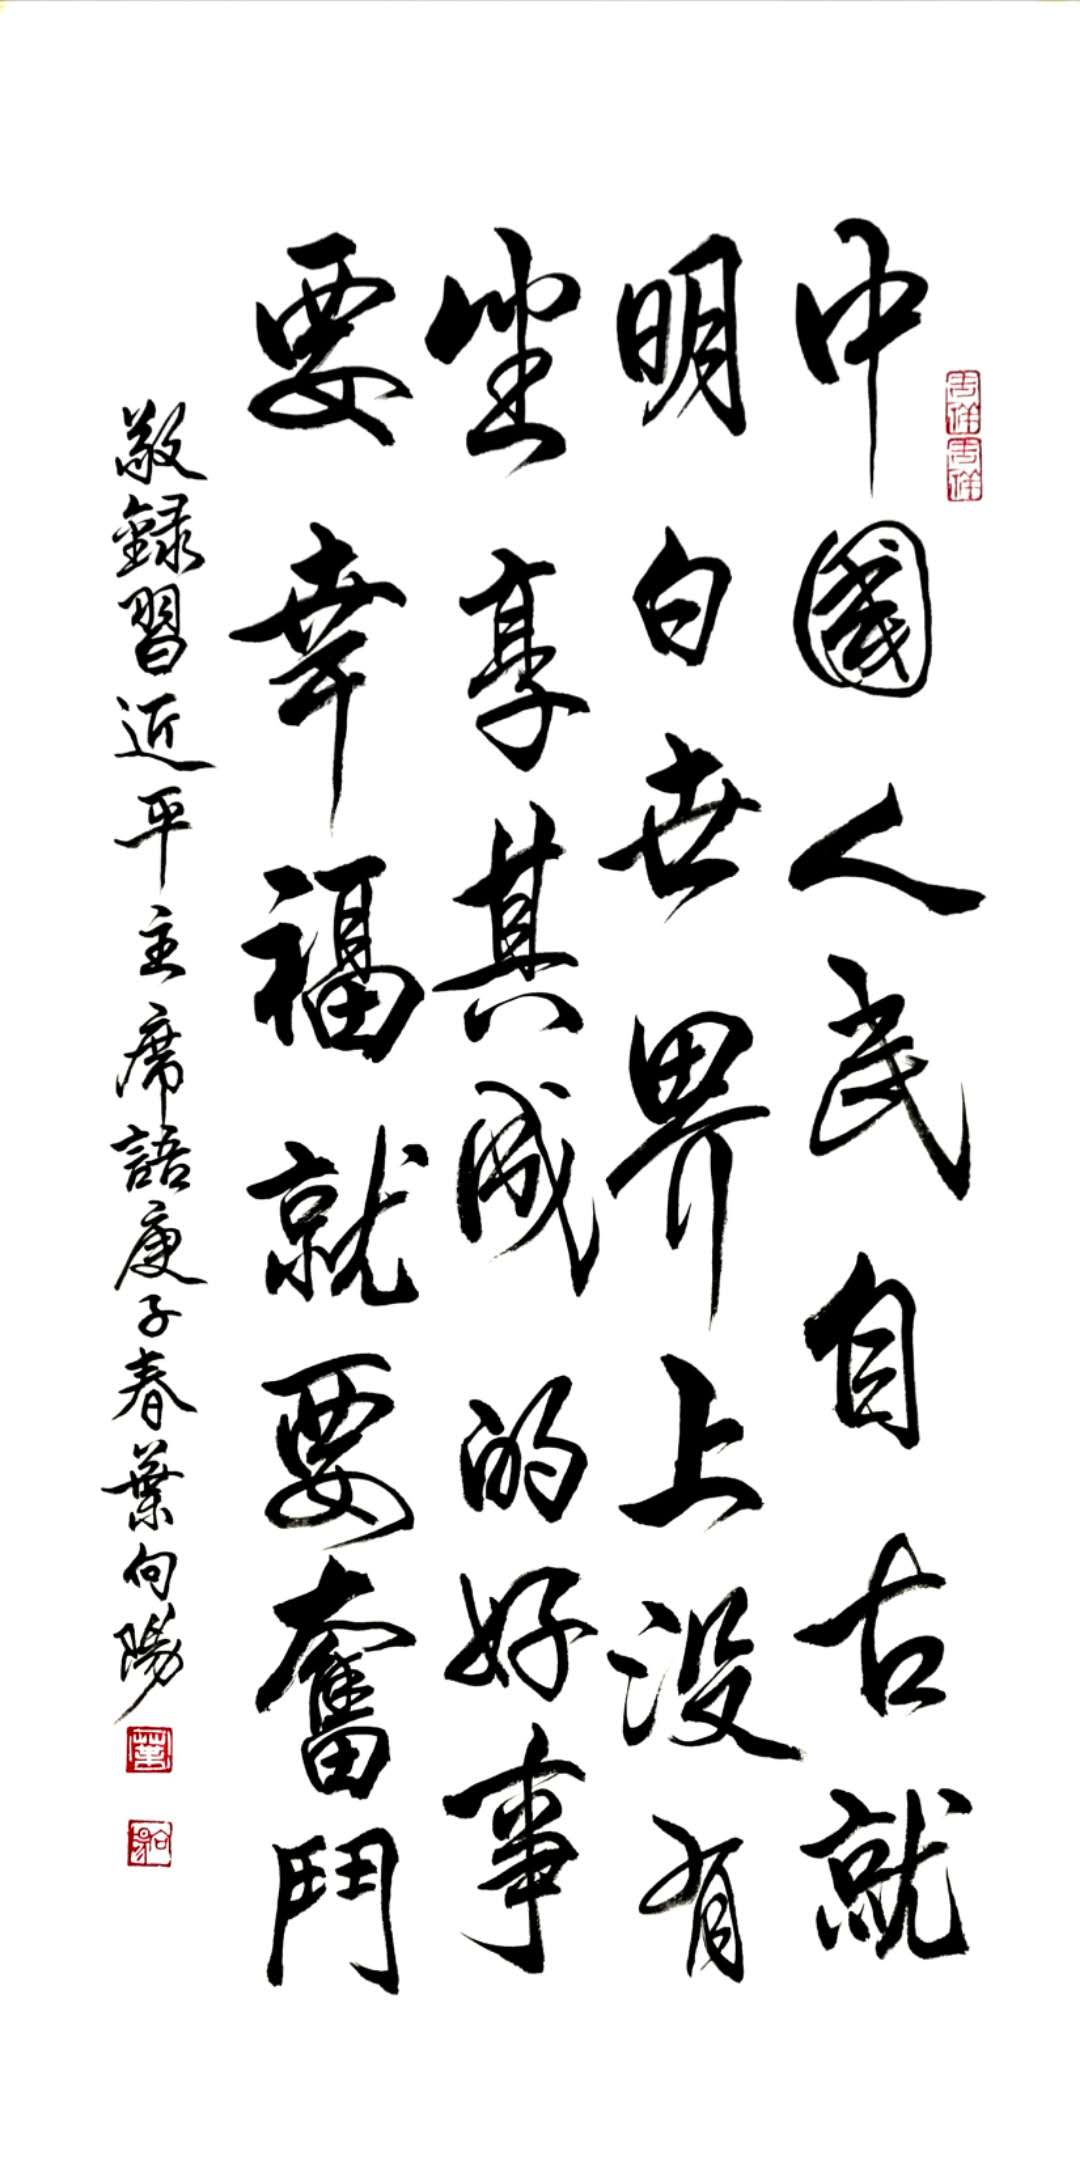 中國人民自古就
明白世界上没有
坐享其成的好事
要幸福就要奮鬥
敬録習近平主席語庚子春葉向陽
葉